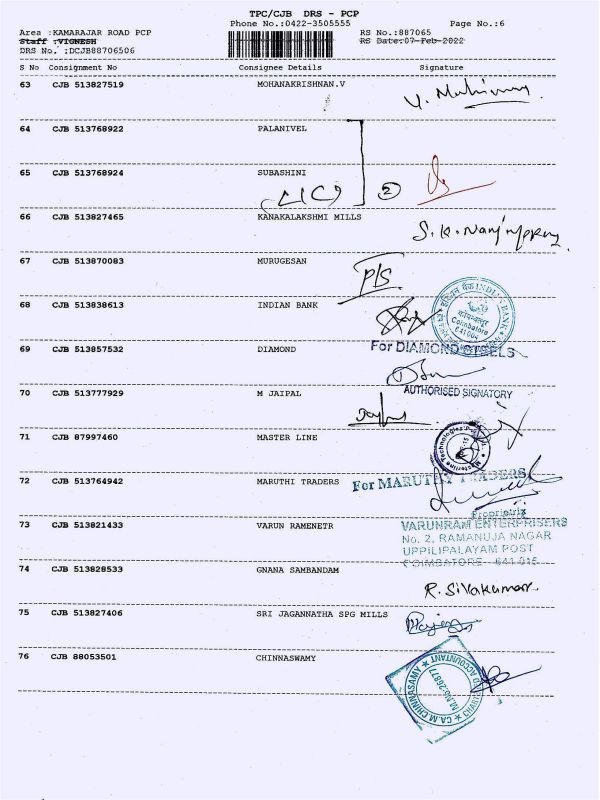 TPC/CJB DRS - PCP
Phone No.:0422-3505555
Page No.:6
Area :KAMARAJAR ROAD PCP
RS No.:887065
Staff :VIGNESH
RS Date:07-Feb-2022
DRS No. :DCJB88706506
S No Consignment No Consignee Details Signature
63 CJB 513827519 MOHANAKRISHNAN.V
64 CJB 513768922 PALANIVEL
65 CJB 513768924 SUBASHINI
LIC 2
66 CJB 513827465 KANAKALAKSHMI MILLS
67 CJB 513870083 MURUGESAN
68 CJB 513838613 INDIAN BANK
INDIAN BANK
Coimbatore
641004
69 CJB 513857532 DIAMOND
For DIAMOND STEELS
AUTHORISED SIGNATORY
70 CJB 513777929 M JAIPAL
71 CJB 87997460 MASTER LINE
72 CJB 513764942 MARUTHI TRADERS
For MARUTHY TRADERS
Proprietrix
73 CJB 513821433 VARUN RAMENETR
VARUNRAM ENTERPRISERS
No. 2, RAMANUJA NAGAR
UPPILIPALAYAM POST
COIMBATORE - 641 015
74 CJB 513828533 GNANA SAMBANDAM
R. Sivakumar
75 CJB 513827406 SRI JAGANNATHA SPG MILLS
76 CJB 88053501 CHINNASWAMY
CA.M.CHINNASAMY
M.No-26877
CHARTERED ACCOUNTANT